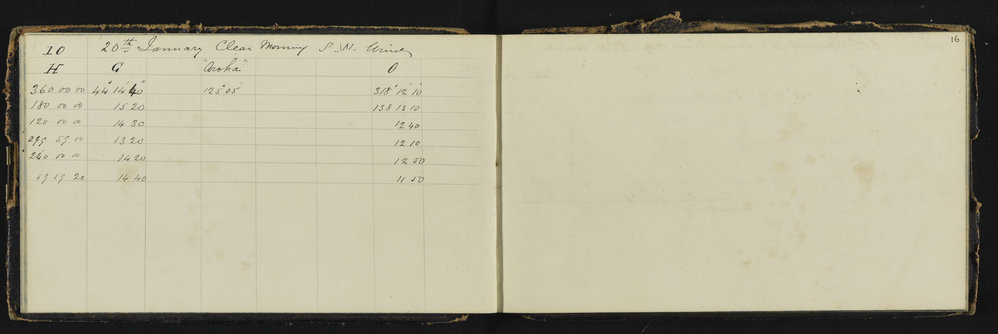 10 20th January Clear Morning S.W. Wind
H G "Aroha" O
360 00 00 44° 14' 40" 125° 05' 318° 12' 10"
180 00 00 15 20 138 13 10
120 00 00 14 30 12 40
299 59 00 13 20 12 10
240 00 00 14 20 12 50
59 59 20 14 40 11 50
16